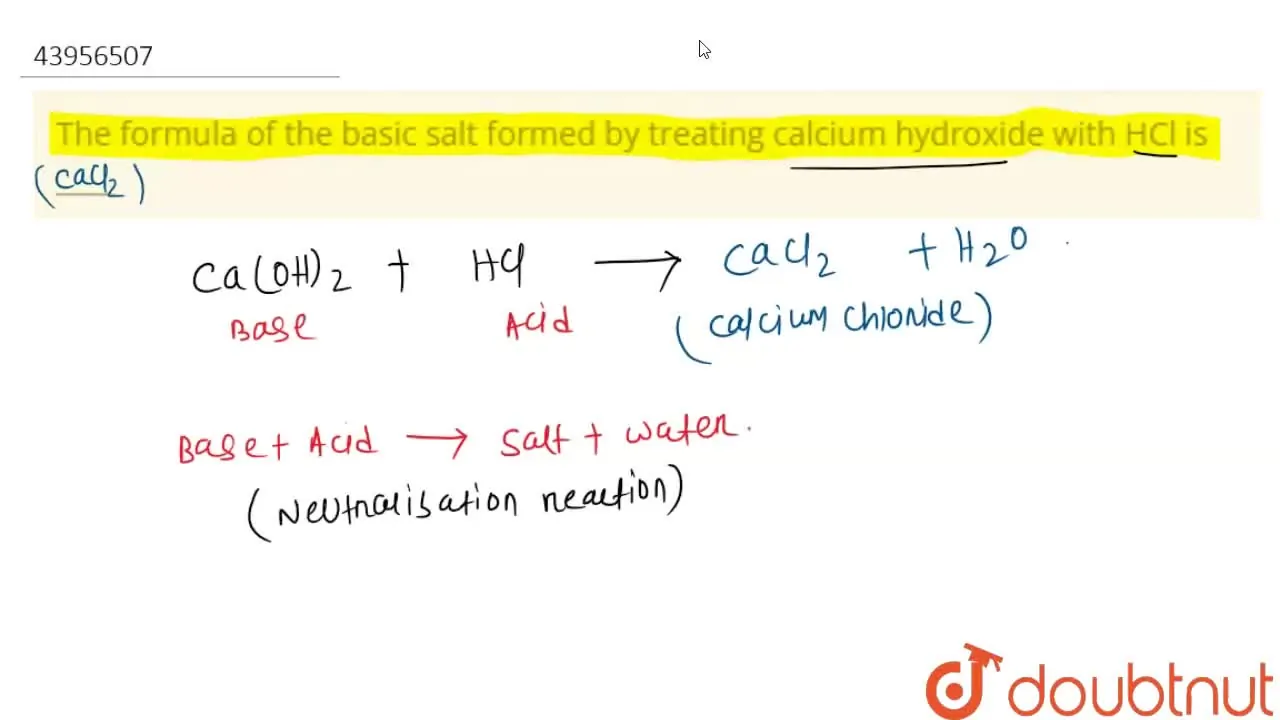 43956507
The formula of the basic salt formed by treating calcium hydroxide with HCl is
(CaCl2)
Ca(OH)2 + HCl → CaCl2 + H2O
Base Acid (calcium chloride)
Base + Acid → Salt + water.
(Neutralisation reaction)
doubtnut